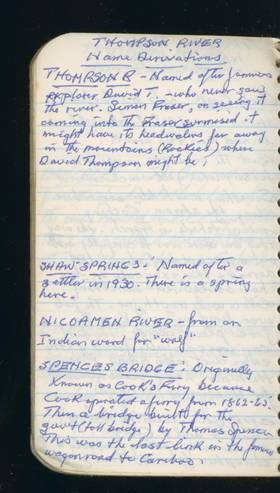 THOMPSON RIVER
Name Derivations
THOMPSON R - Named after famous
explorer David T. - who never saw
the river. Simon Fraser, on seeing it
coming into the Fraser surmised it
might have its headwaters far away
in the mountains (Rockies) where
David Thompson might be,
SHAW SPRINGS - Named after a
settler in 1930. There is a spring
here.
NICOAMEN RIVER - from an
Indian word for "wolf"
SPENCES BRIDGE: Originally
Known as Cook's Ferry because
Cook operated a ferry from 1862-65.
Then a bridge built for the
govt (toll bridge) by Thomas Spence.
This was the last link in the famous
wagon road to Cariboo.